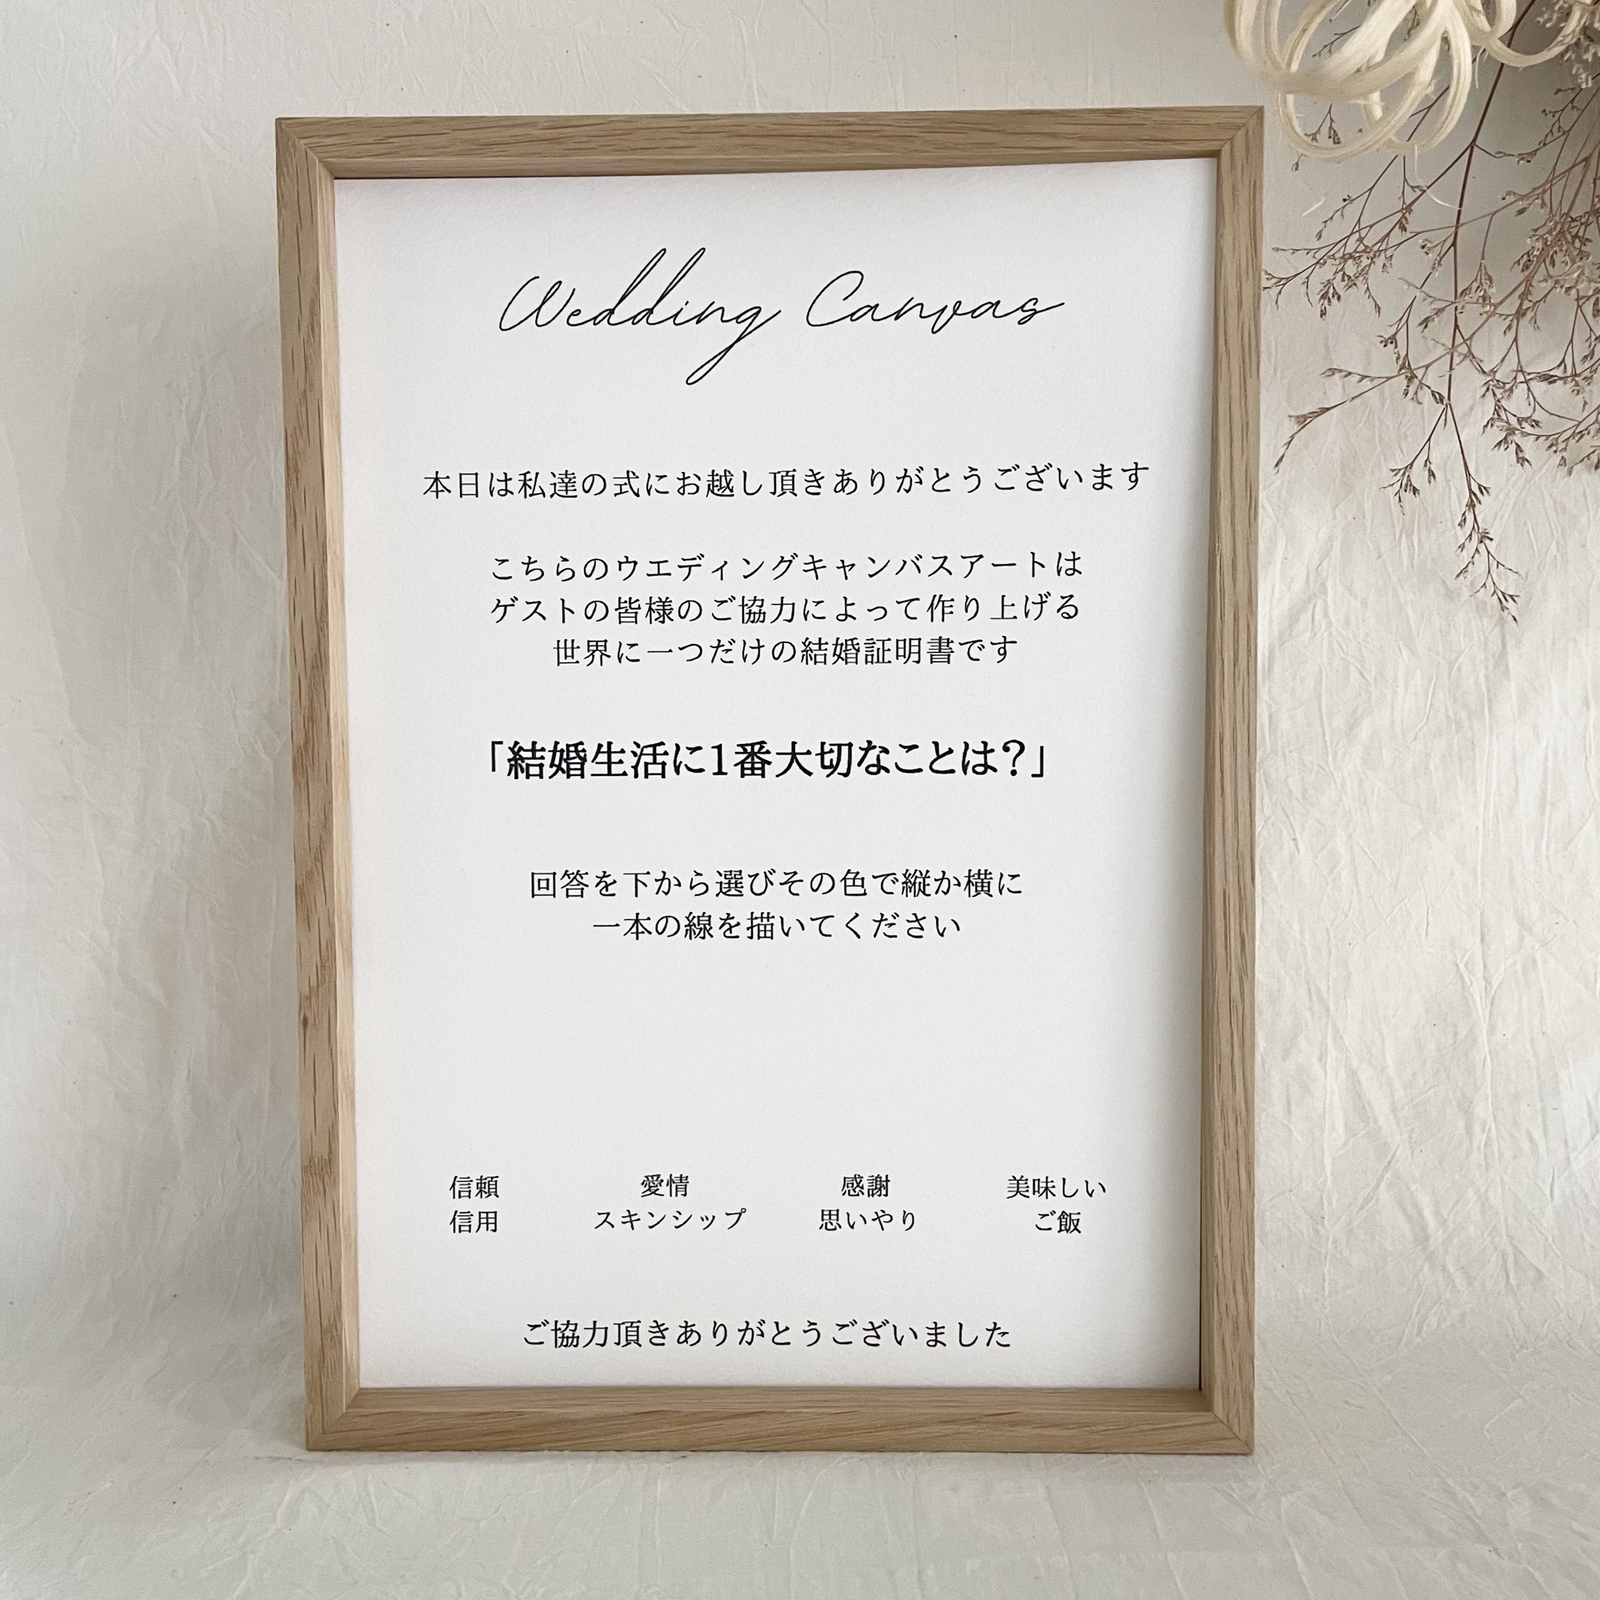 Wedding Canvas
本日は私達の式にお越し頂きありがとうございます
こちらのウエディングキャンバスアートは
ゲストの皆様のご協力によって作り上げる
世界に一つだけの結婚証明書です
「結婚生活に1番大切なことは?」
回答を下から選びその色で縦か横に
一本の線を描いてください
信頼
信用
愛情
スキンシップ
感謝
思いやり
美味しい
ご飯
ご協力頂きありがとうございました